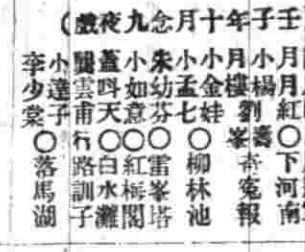 壬子年十月念九夜戲（
月月紅〇下河南
小楊劉壽
月樓峯奇冤報
小金娃
小孟七〇柳林池
朱幼芬〇雷峯塔
小如意〇紅梅閣
蓋呌天〇白水灘
龔雲甫行路訓子
小達子
李少棠〇落馬湖